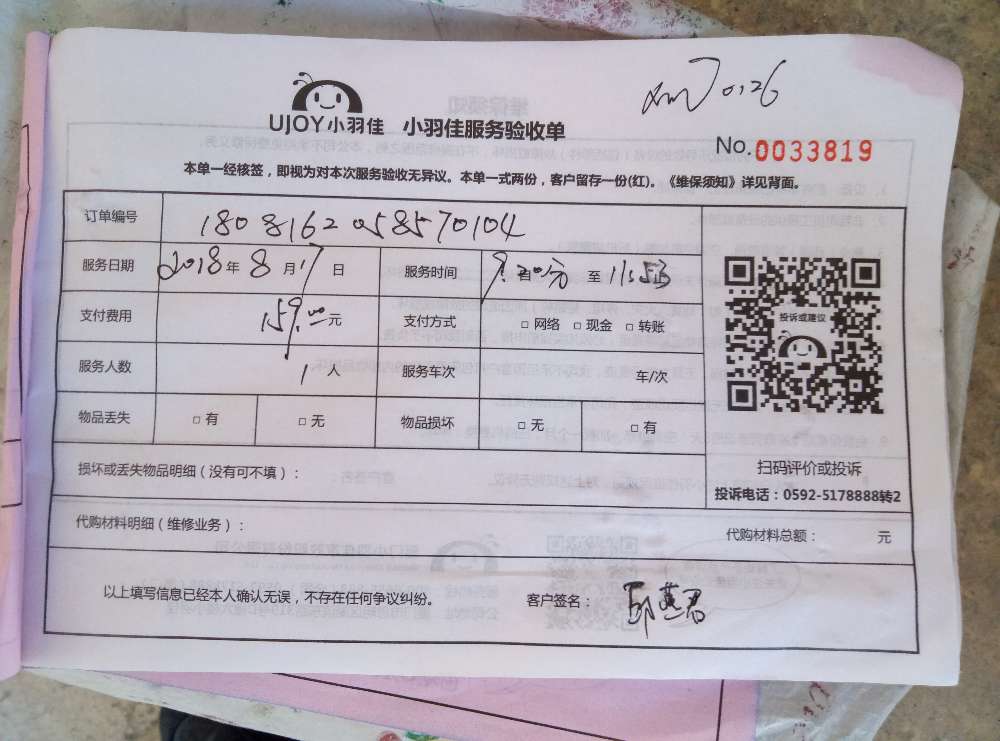 UJOY小羽佳 小羽佳服务验收单
No.0033819
本单一经核签，即视为对本次服务验收无异议。本单一式两份，客户留存一份(红)。《维保须知》详见背面。
订单编号 1808162058570104
服务日期 2018年8月17日 服务时间 9:20分 至 11:53
支付费用 159.00元 支付方式 □ 网络 □ 现金 □ 转账
服务人数 1 人 服务车次 车/次
物品丢失 □ 有 □ 无 物品损坏 □ 无 □ 有
投诉或建议
扫码评价或投诉
投诉电话：0592-5178888转2
损坏或丢失物品明细（没有可不填）：
代购材料明细（维修业务）： 代购材料总额： 元
以上填写信息已经本人确认无误，不存在任何争议纠纷。 客户签名：